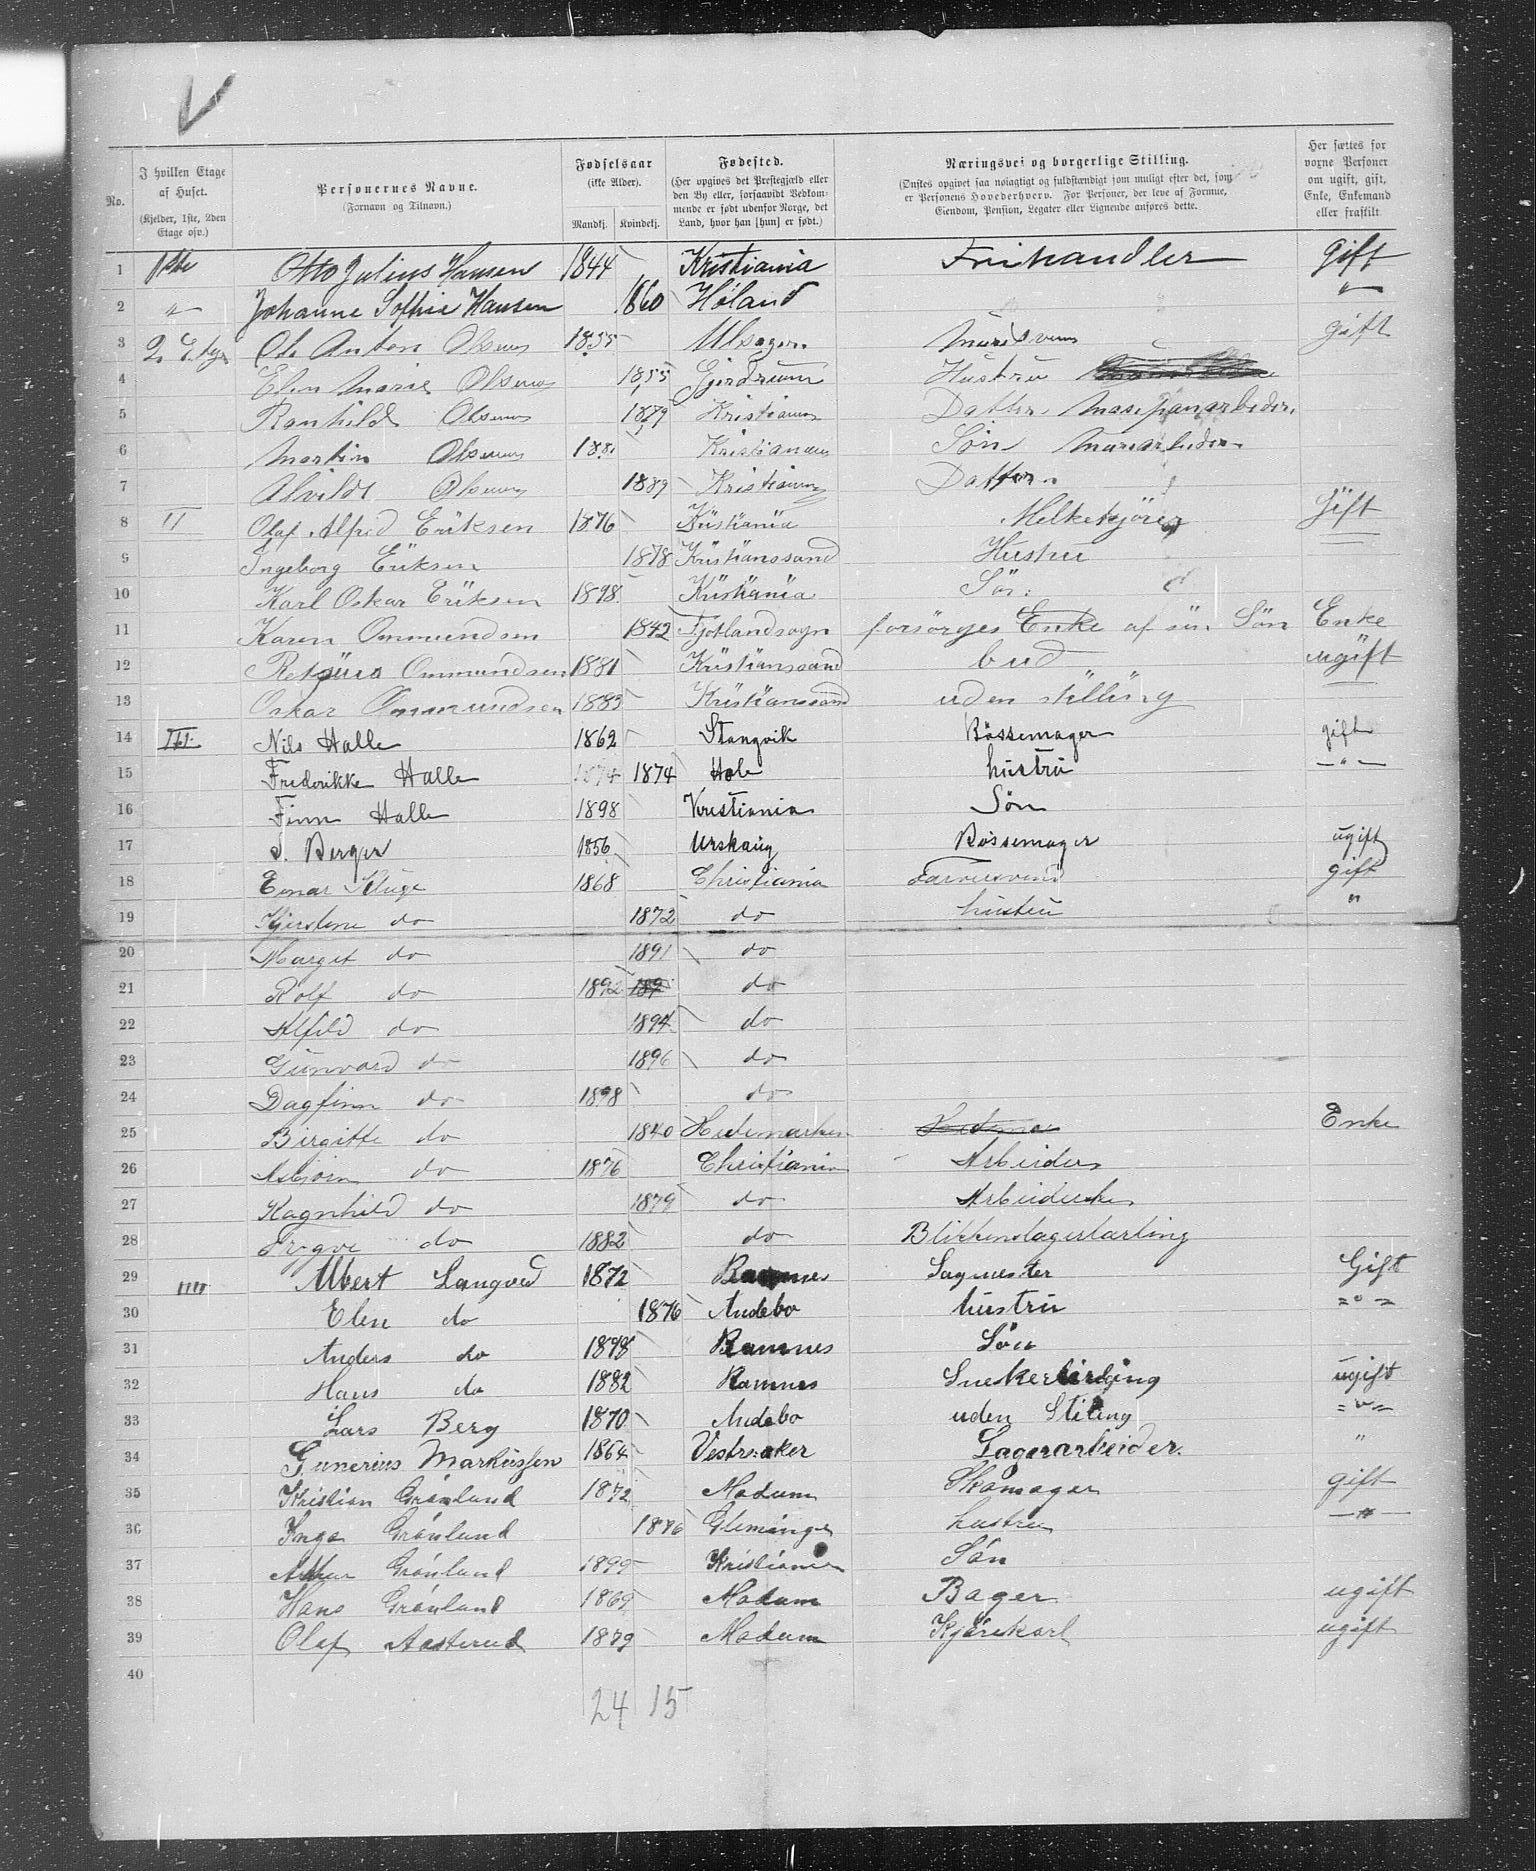 No.
I hvilken Etage af Huset. (Kjelder, 1ste, 2den Etage osv.)
Personernes Navne. (Fornavn og Tilnavn.)
Fødselsaar (ikke Alder). Mandkj. Kvindekj.
Fødested. (Her opgives det Prestegjæld eller den By eller, forsaavidt Vedkommende er født udenfor Norge, det Land, hvor han [hun] er født.)
Næringsvei og borgerlige Stilling. (Ønskes opgivet saa nøiagtigt og fuldstændigt som muligt efter det, som er Personens Hovederhverv. For Personer, der leve af Formue, Eiendom, Pension, Legater eller Lignende anføres dette.
Her sættes for voxne Personer om ugift, gift, Enke, Enkemand eller fraskilt
1 1ste Otto Julius Hansen 1844 Kristiania Frihandler gift
2 " Johanne Sofhie Hansen 1860 Høland "
3 2. Etage Ole Anton Olsen 1855 Ulsager Mursvenn gift
4 Elen Marie Olsen 1855 Gjerdrum Hustru
5 Ranhild Olsen 1879 Kristiania Datter
6 Martin Olsen 1881 Kristiania Søn Murarbeider
7 Alvilde Olsen 1889 Kristiania Datter
8 II Olaf Alfred Eriksen 1876 Kristiania Melkekjører Gift
9 Ingeborg Eriksen 1878 Kristianssand Hustru
10 Karl Oskar Eriksen 1898 Kristiania Søn
11 Karen Ommundsen 1842 Fjotlandsogn forsørges Enke af sin Søn Enke
12 Ommundsen 1881 Kristianssand bud ugift
13 Oskar Ommundsen 1883 Kristianssand uden stilling
14 III. Nils Halle 1862 Stangvik Bössemager gift
15 Frederikke Halle 1874 1874 Hole hustru -"-
16 Finn Halle 1898 Kristiania Søn
17 Berger 1856 Urskaug Bössemager ugift
18 Einar Kluge 1868 Christiania Farversvend gift
19 Kjerstine do 1872 do hustru "
20 Marget do 1891 do
21 Rolf do 1892 189 do
22 Alfild do 1894 do
23 Gunvard do 1896 do
24 Dagfinn do 1898 do
25 Birgitte do 1840 Hedemarken Enke
26 Asbjørn do 1876 Christiania Arbeider
27 Ragnhild do 1879 do Arbeiderske
28 Trygve do 1882 do Blikkenslagerlærling
29 IIII Albert Langved 1872 Ramnes Sagmester Gift
30 Elen do 1876 Andebo hustru -"-
31 Anders do 1898 Ramnes Søn
32 Hans do 1882 Ramnes Snekerlærling ugift
33 Lars Berg 1870 Andebo uden Stiling -"-
34 Gunerius Markussen 1864 Vestre aker Lagerarbeider. "
35 Kristian Grønlund 1872 Modum Skomager gift
36 Inga Grønlund 1876 Gleminge hustru -"-
37 Arthur Grønlund 1899 Kristiania Søn
38 Hans Grønlund 1869 Modum Bager ugift
39 Olaf Aasterud 1879 Modum Kjørekarl ugift
40
24 15